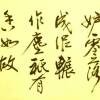 妒零落
成泥碾
作塵祇有
香如故